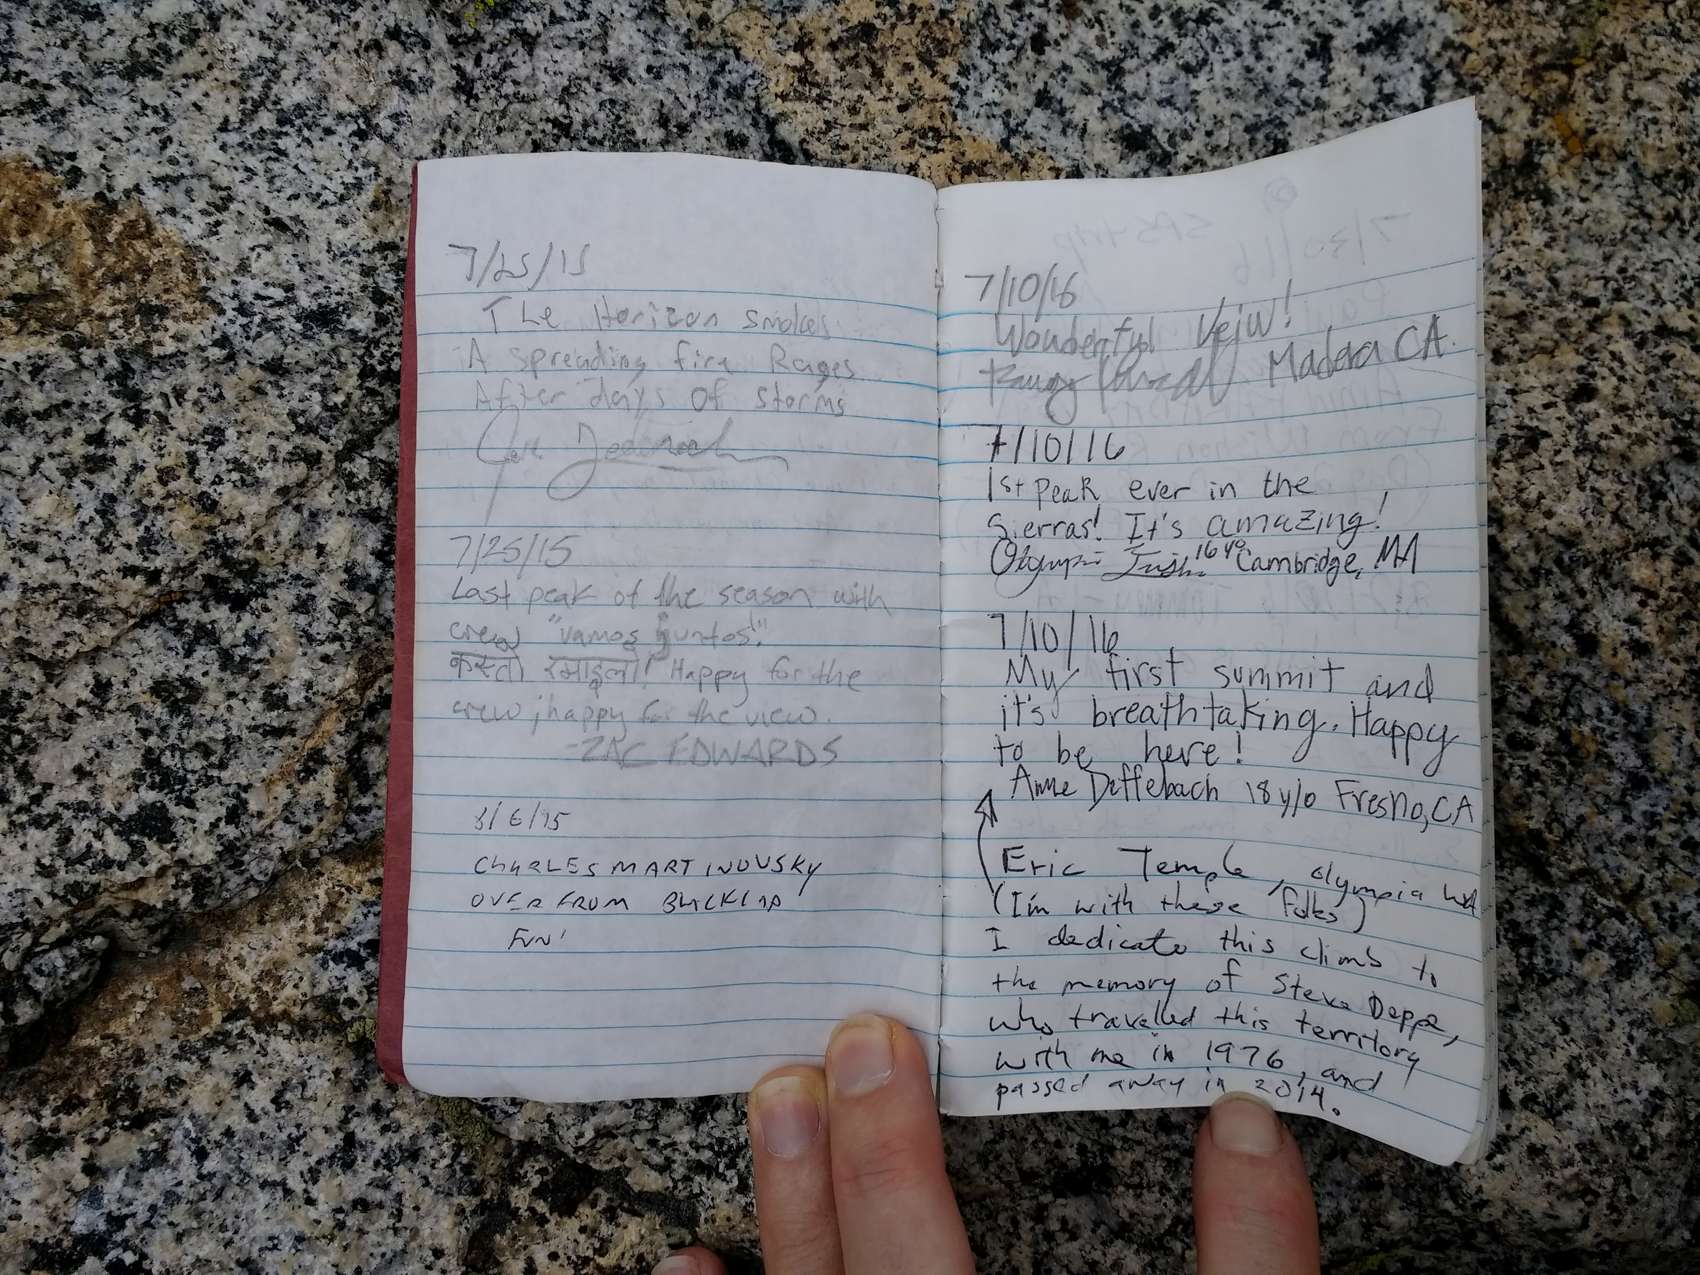 7/25/15
The Horizon smokes
A spreading fire Rages
After days of storms
7/25/15
Last peak of the season with
crew "vamos juntos!"
कस्तो रमाइलो! Happy for the
crew, happy for the view.
-ZAC EDWARDS
8/6/15
CHARLES MARTINOVSKY
OVER FROM BLACKCAP
FUN!
7/10/16
Wonderful Veiw!
Madera CA.
7/10/16
1st Peak ever in the
Sierras! It's amazing!
Cambridge, MA
7/10/16
My first summit and
it's breathtaking. Happy
to be here!
Anne Deffebach 18 y/o Fresno, CA
Eric Temple, Olympia WA
(I'm with these folks)
I dedicate this climb to
the memory of Steve Deppe,
who travelled this territory
with me in 1976, and
passed away in 2014.
7/30/16 SPS trip